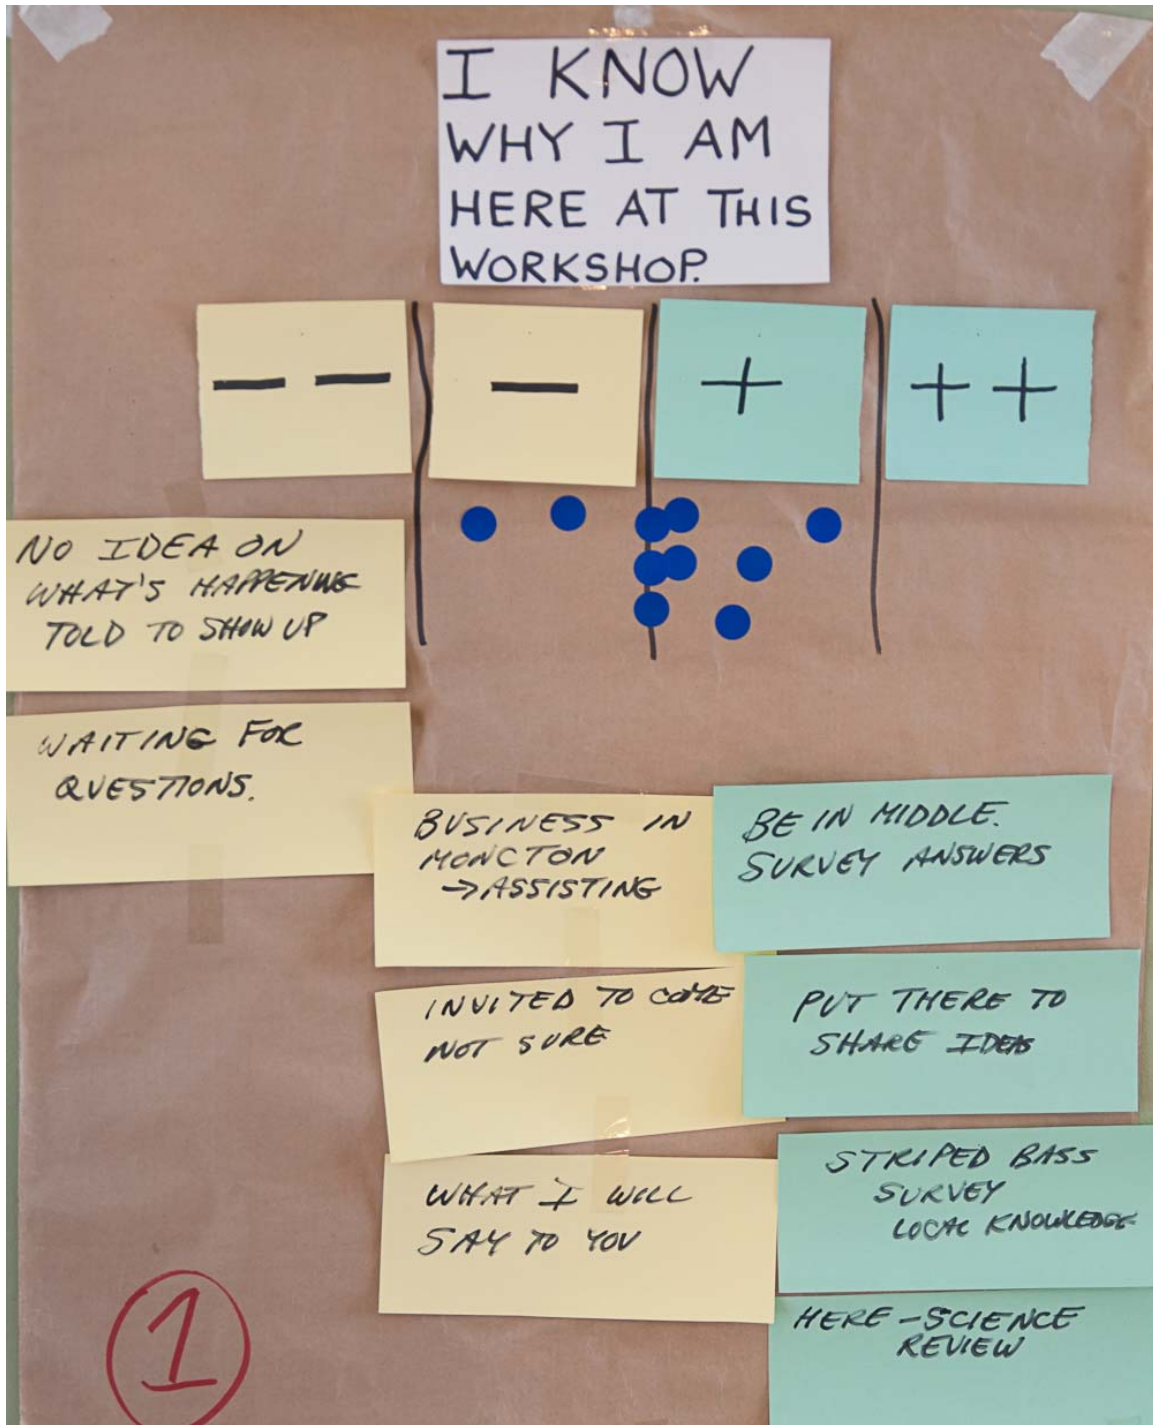 I KNOW
WHY I AM
HERE AT THIS
WORKSHOP.
— —
—
+
++
NO IDEA ON
WHAT'S HAPPENING
TOLD TO SHOW UP
WAITING FOR
QUESTIONS.
BUSINESS IN
MONCTON
→ASSISTING
INVITED TO COME
NOT SURE
WHAT I WILL
SAY TO YOU
BE IN MIDDLE.
SURVEY ANSWERS
PUT THERE TO
SHARE IDEAS
STRIPED BASS
SURVEY
LOCAL KNOWLEDGE
HERE – SCIENCE
REVIEW
1